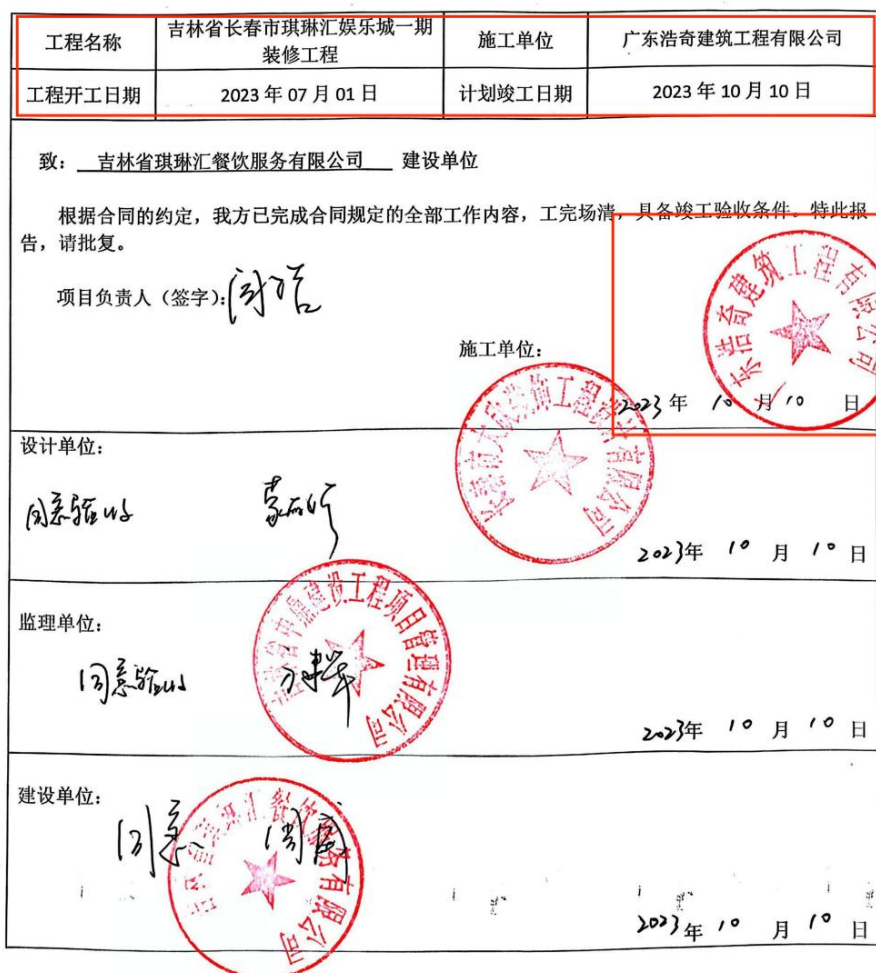 工程名称 吉林省长春市琪琳汇娱乐城一期装修工程 施工单位 广东浩奇建筑工程有限公司
工程开工日期 2023年07月01日 计划竣工日期 2023年10月10日
致：吉林省琪琳汇餐饮服务有限公司 建设单位
根据合同的约定，我方已完成合同规定的全部工作内容，工完场清，具备竣工验收条件。特此报
告，请批复。
项目负责人（签字）：
广东浩奇建筑工程有限公司
施工单位：
2023年 10月10日
设计单位：
同意验收
2023年 10月10日
监理单位：
同意验收
2023年 10月10日
建设单位：
同意
吉林省琪琳汇餐饮服务有限公司
2023年 10月10日